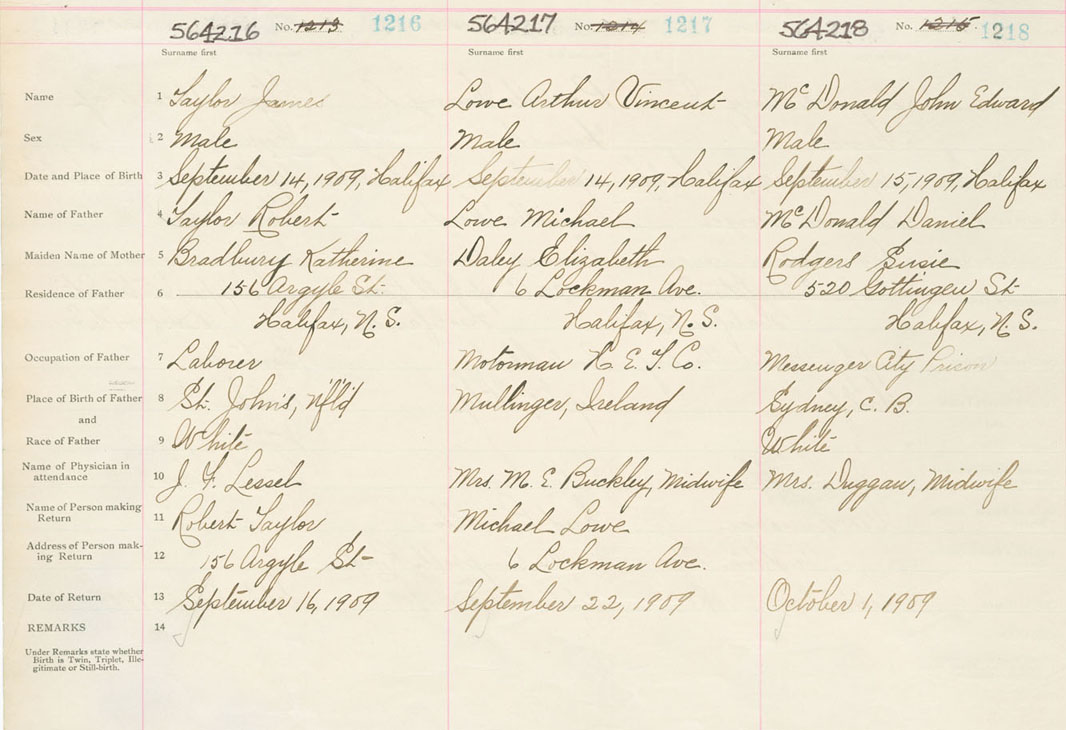 564216 No. 1213 1216 564217 No. 1214 1217 564218 No. 1215 1218
Surname first Surname first Surname first
Name 1 Taylor James Lowe Arthur Vincent McDonald John Edward
Sex 2 Male Male Male
Date and Place of Birth 3 September 14, 1909, Halifax September 14, 1909, Halifax September 15, 1909, Halifax
Name of Father 4 Taylor Robert Lowe Michael McDonald Daniel
Maiden Name of Mother 5 Bradbury Katherine Daley Elizabeth Rodgers Susie
Residence of Father 6 156 Argyle St. 6 Lockman Ave. 520 Gottingen St
Halifax, N.S. Halifax, N.S. Halifax, N.S.
Occupation of Father 7 Laborer Motorman H.E.T. Co. Messenger City Prison
Place of Birth of Father 8 St. John's, N'f'l'd Mullinger, Ireland Sydney, C.B.
and
Race of Father 9 White White
Name of Physician in
attendance 10 J. F. Lessel Mrs. M. E. Buckley, Midwife Mrs. Duggan, Midwife
Name of Person making
Return 11 Robert Taylor Michael Lowe
Address of Person mak-
ing Return 12 156 Argyle St 6 Lockman Ave.
Date of Return 13 September 16, 1909 September 22, 1909 October 1, 1909
REMARKS 14
Under Remarks state whether
Birth is Twin, Triplet, Ille-
gitimate or Still-birth.